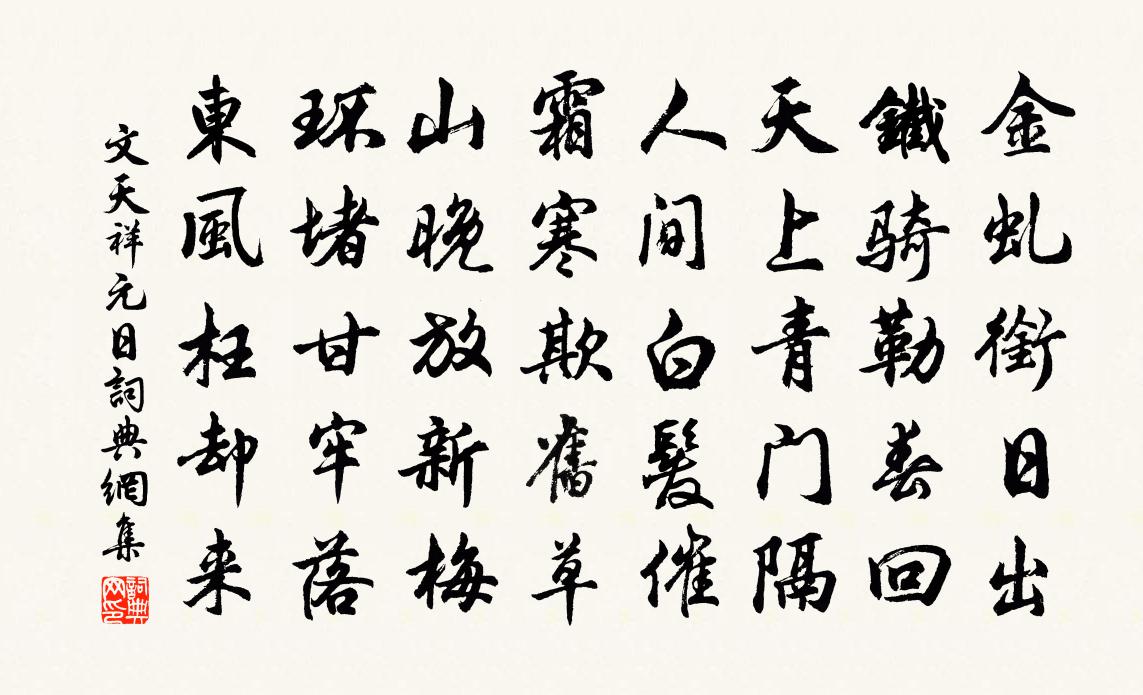 金虬銜日出
鐵骑勒春回
天上青门隔
人间白髮催
霜寒欺舊草
山晚放新梅
环堵甘牢落
東風枉却来
文天祥元日詞典網集
詞典网印